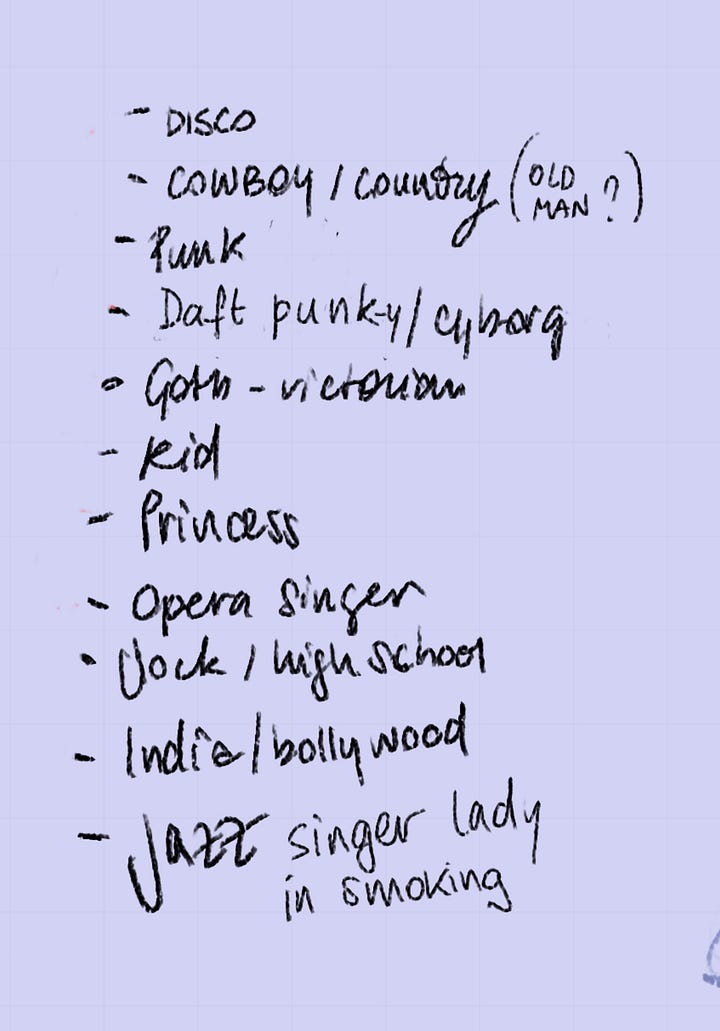 - DISCO
- COWBOY / Country (OLD MAN ?)
- Punk
- Daft punk-y / cyborg
- Goth - victorian
- Kid
- Princess
- Opera singer
- Jock / high school
- India / bollywood
- Jazz singer lady
in smoking